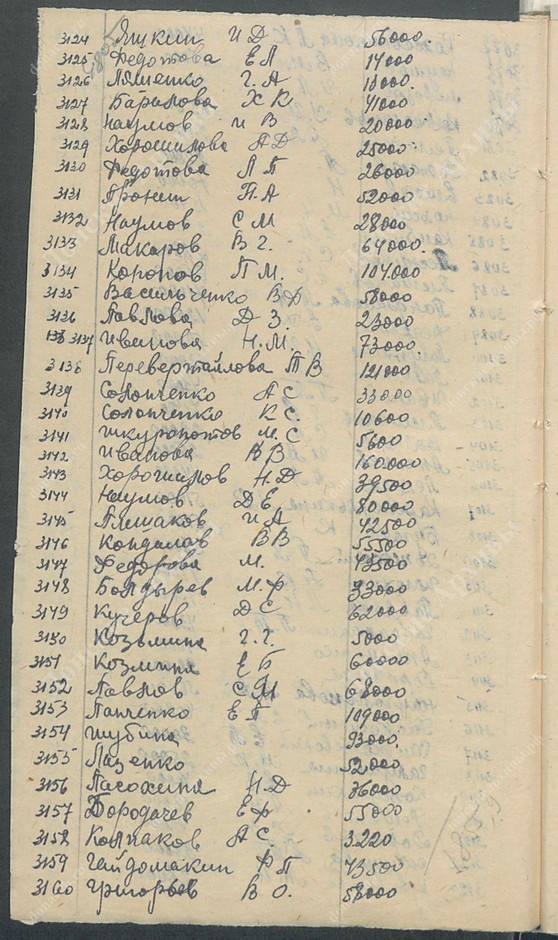 3124 Щукин И Д 56000.
3125 Федотова Е Л 14000
3126 Ляшенко Г. А 10000.
3127 Баранова Х К 41000
3128 Наумов И В 20000
3129 Хорошилова А Д 25000
3130 Федотова Л П 26000
3131 Пронин П. А 52000
3132 Наумов С М 28000
3133 Макаров В Г. 64000.
3134 Коропов П М. 104000
3135 Васильченко В Ф 58000
3136 Павлова Д З. 23000
3137 Иванова Н. М. 73000
3138 Перевертайлова Т В 121000
3139 Солопченко А С 33000
3140 Солопченко К С. 10600
3141 Шкуропотов М. С 5600
3142 Иванова В В 160.000
3143 Хорошилов Н Д 39500
3144 Наумов Д Е 80000
3145 Плешаков И А 42500
3146 В В 55500
3147 Федорова М. 43500
3148 Болдырев М. Ф 33000
3149 Кучеров Д С 62000
3150 Козьмина Г. Г. 5000
3151 Козмина Е Б 60000
3152 Павлов С М 68000
3153 Панченко Е П 109000
3154 Шубина 93000.
3155 Лазенко 52000
3156 Пасохина Н. Д 36000
3157 Бородачев Е Ф 55000
3158 Колпаков А С. 3.220
3159 Гейдомакин Ф П 43500
3160 Григорьев В О. 58000